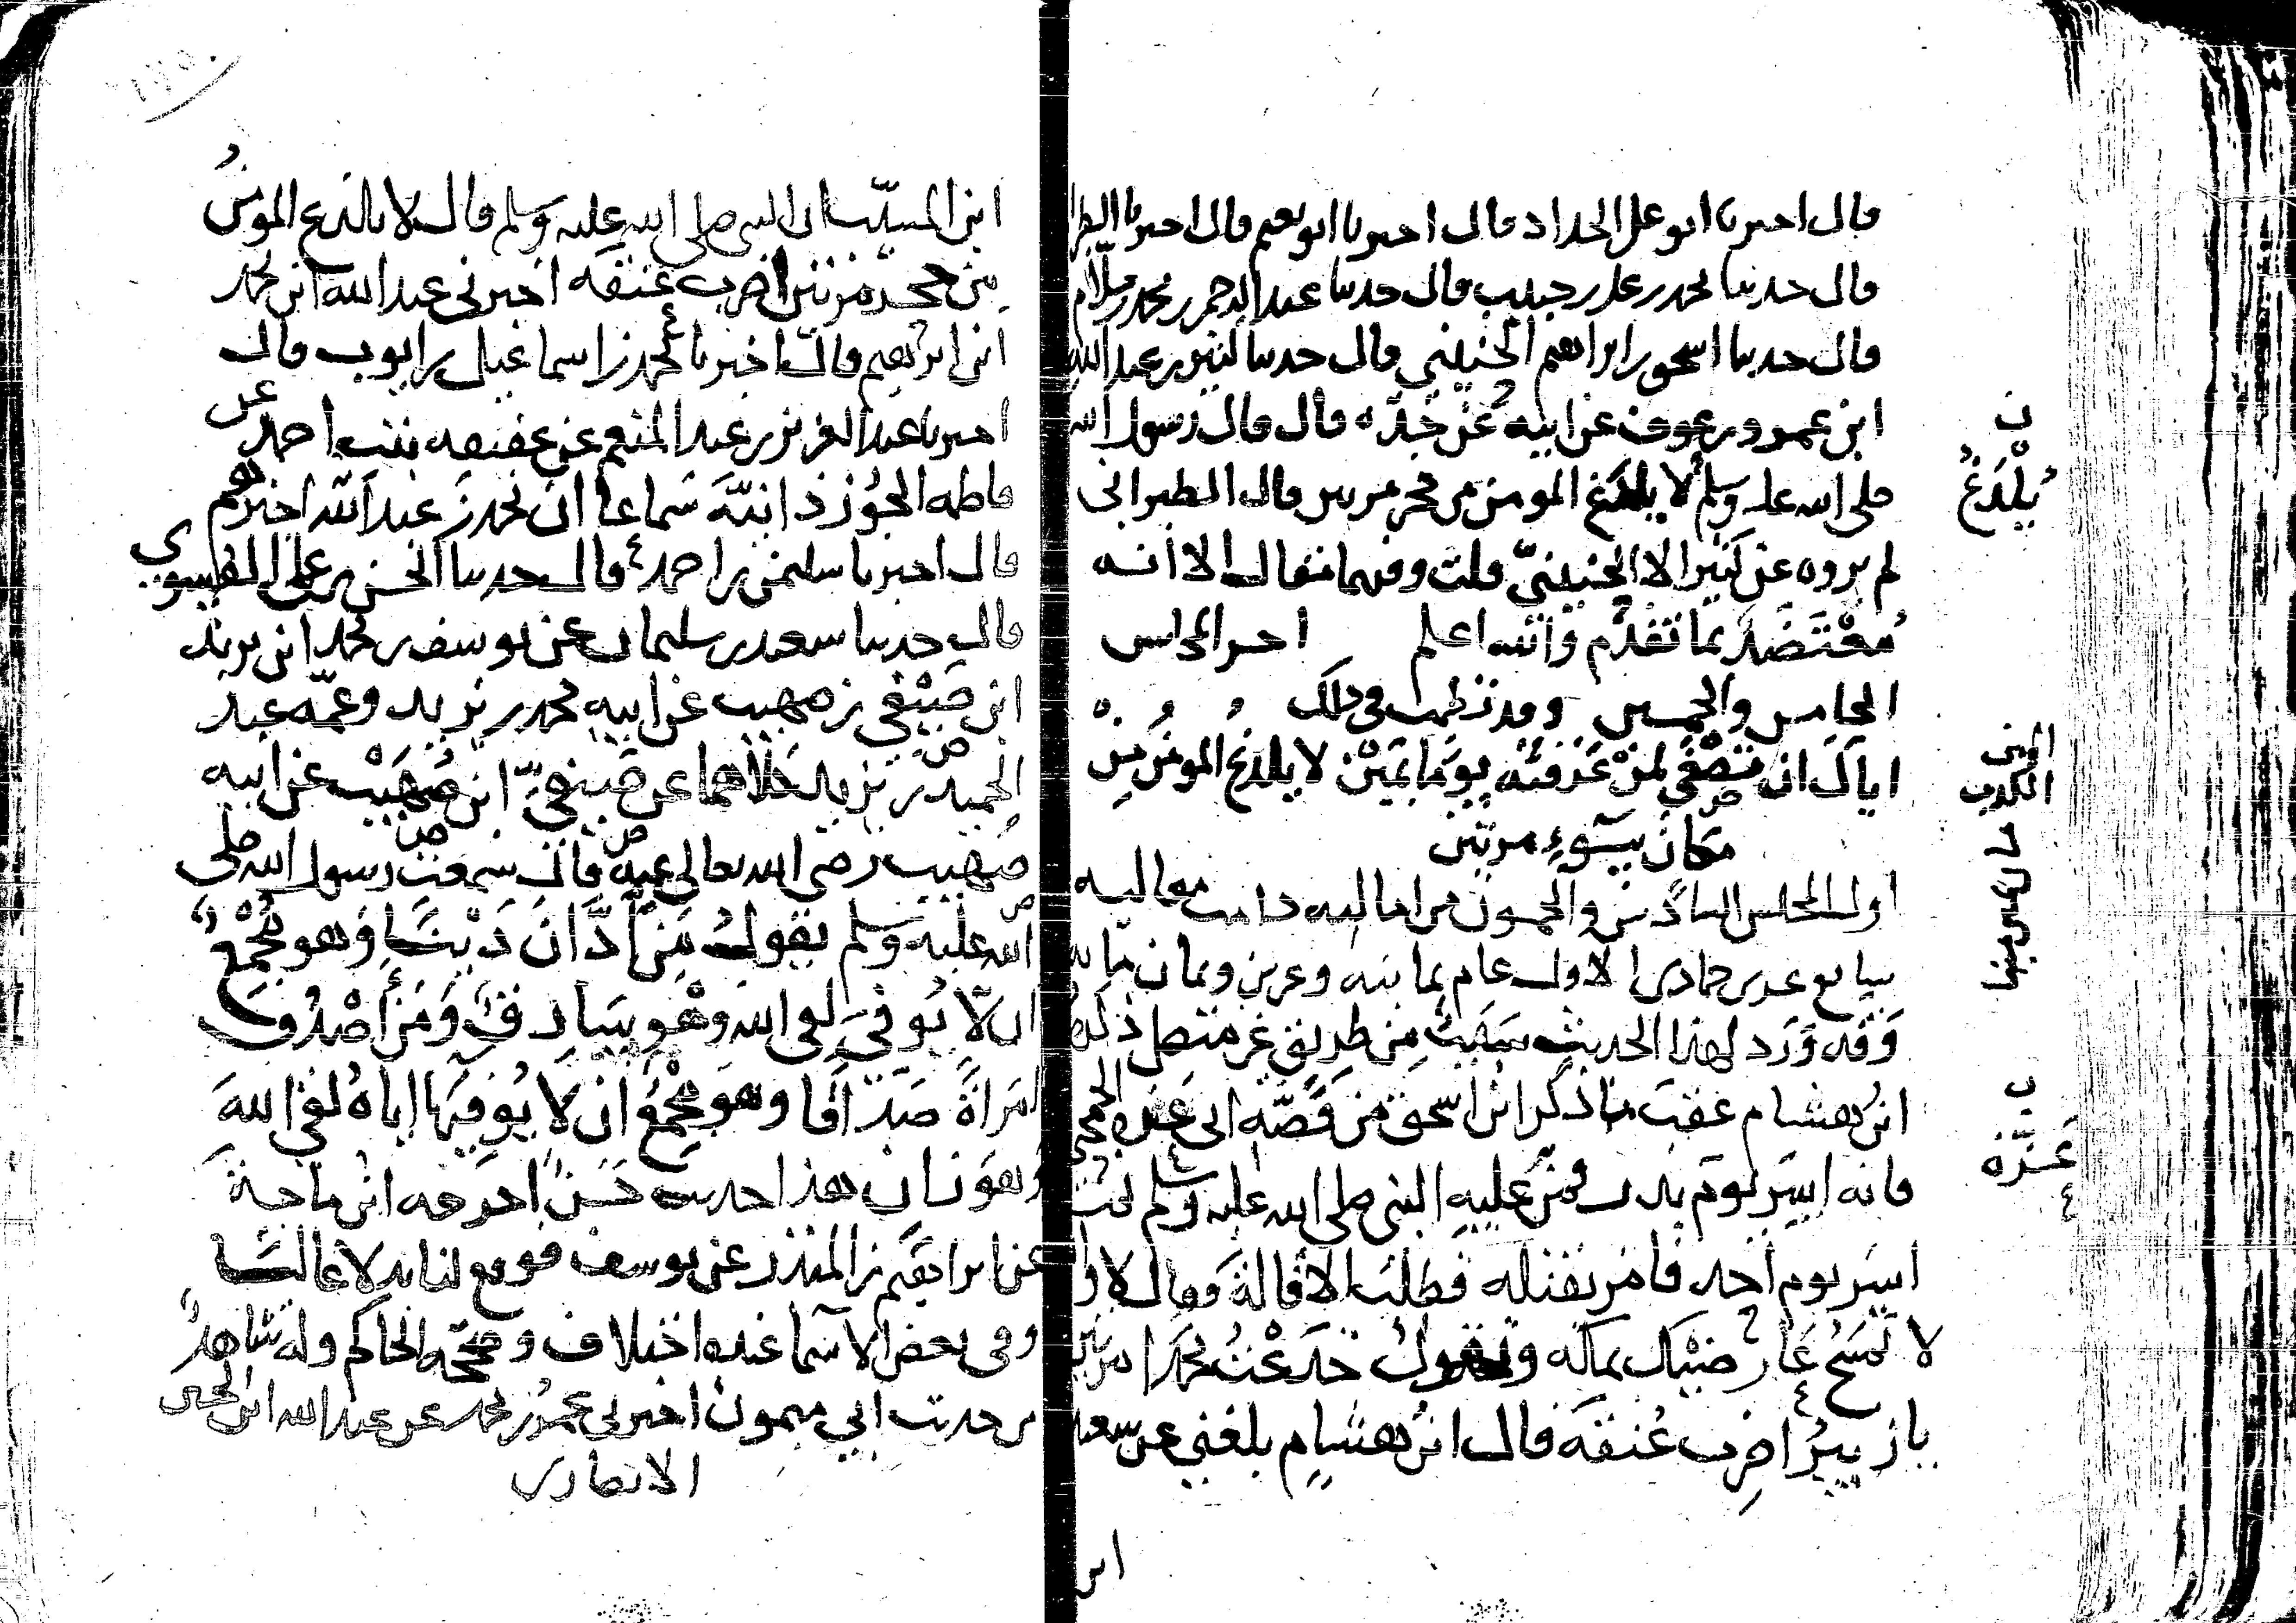 قال اخبرنا ابو علي الحداد قال اخبرنا ابو نعيم قال اخبرنا الطبرا
قال حدثنا محمد بن علي بن حبيب قال حدثنا عبد الرحمن بن محمد بن سلام
قال حدثنا اسحق بن ابراهيم الحنيني قال حدثنا كثير بن عبد الله
ابن عمرو بن عوف عن ابيه عن جده قال قال رسول الله
صلى الله عليه وسلم لا يلدغ المومن من جحر مرتين قال الطبراني
لم يروه عن كثير الا الحنيني قلت وفيهما مقال الا انه
معتضد بما تقدم والله اعلم اخر المجلس
الخامس والخمسين وقد نظمت في ذلك
اياك ان تصغي لمن عرفته يوما بمين لا يلدغ المومن من
مكان بسوء مرتين
اول المجلس السادس والخمسون من اماليه دامت معاليه
وقد ورد لهذا الحديث سبب من طريق غير متصل ذكره
ابن هشام عقب ما ذكر ابن اسحق من قصه ابي عزه الجمحي
فانه اسر يوم بدر فمن عليه النبي صلى الله عليه وسلم ثم
اسر يوم احد فامر بقتله فطلب الاقالة فقال لا والله
لا تمسح عارضيك بمكه وتقول خدعت محمدا مرتين
يا زبير اضرب عنقه قال ابن هشام بلغني عن سعيد
ن
يلدغ
المين
الكذب
ب
عزه
ابن
ابن المسيب ان النبي صلى الله عليه وسلم قال لا يلدغ المومن
من جحر مرتين اضرب عنقه اخبرني عبد الله ابن محمد
ابن ابرهيم قال اخبرنا محمد بن اسماعيل بن ايوب قال
اخبرنا عبد العزيز بن عبد المنعم عن عفيفه بنت احمد عن
فاطمه الجوزذانية سماعا ان محمد بن عبد الله اخبرهم
قال اخبرنا سليمن بن احمد قال حدثنا الحسن بن علي الفسوي
قال حدثنا سعيد بن سليمان عن يوسف بن محمد ابن يزيد
ابن صيفي بن صهيب عن ابيه محمد بن يزيد وعمه عبد
الحميد بن يزيد كلاهما عن صيفي ابن صهيب عن ابيه
صهيب رضي الله تعالى عنه قال سمعت رسول الله صلى
الله عليه وسلم يقول من ادان دينا وهو مجمع
ان لا يوفي لقي الله وهو سارق ومن اصدق
امراة صداقا وهو مجمع ان لا يوفيها اياه لقي الله
وهو زان هذا حديث حسن اخرجه ابن ماجة
عن ابراهيم بن المنذر عن يوسف فوقع لنا بدلا عاليا
وفي بعض الاسما عنده اختلاف وصححه الحاكم وله شاهد
من حديث ابي ميمون اخبرني عمر بن محمد عن عبد الله ابن الحسين
الانصاري